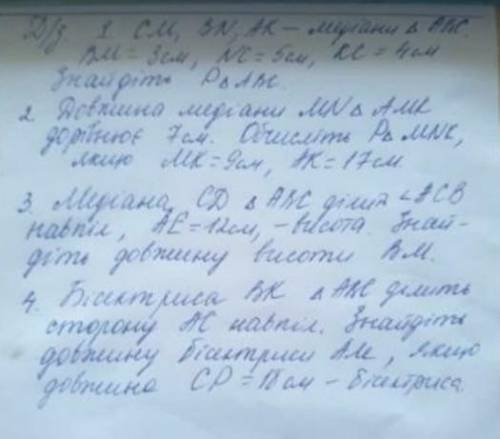 Д/з 1. CM, BN, AK – медіани Δ ABC.
BM = 3см, NC = 5см, KC = 4см
Знайдіть PΔ ABC.
2. Довжина медіани MN Δ AMK
дорівнює 7см. Обчисліть PΔ MNK,
якщо MK = 9см, AK = 17см
3. Медіана CD Δ ABC ділить ∠ACB
навпіл, AE = 12см, – висота. Знай-
діть довжину висоти BM.
4. Бісектриса BK Δ ABC ділить
сторону AC навпіл. Знайдіть
довжину бісектриси AM, якщо
довжина CP = 18см – бісектриса